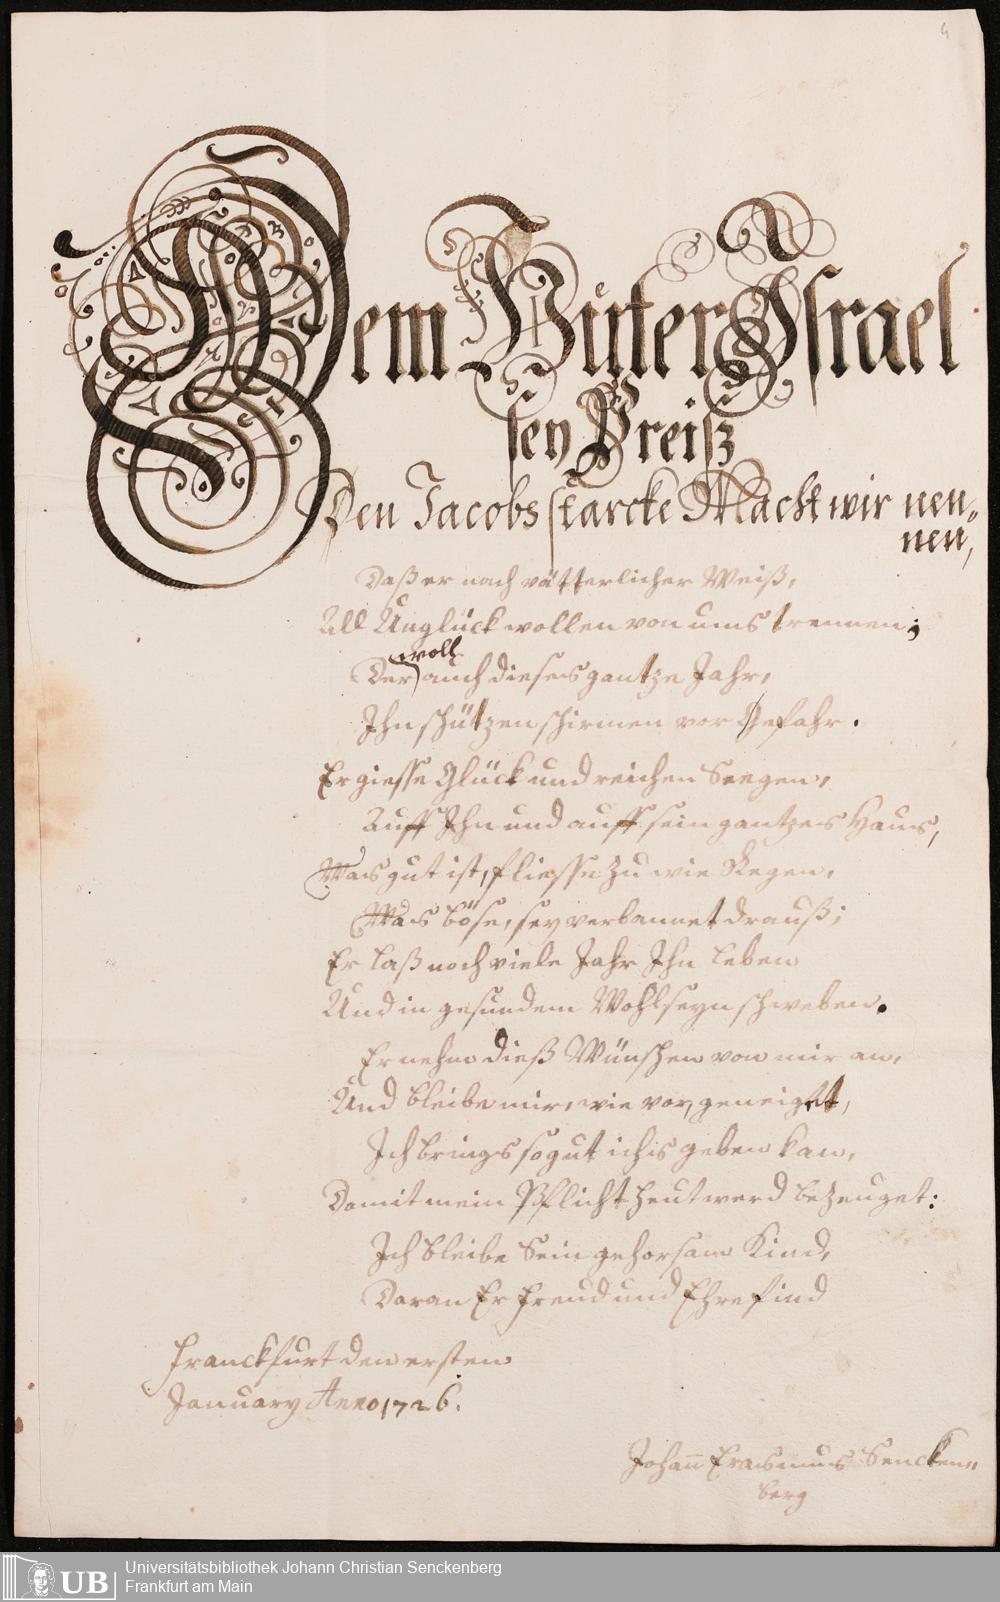 4
Dem Hüter Israel
sey Preiß
Den Jacobs starcke Macht wir nen-
nen,
Daß er nach vätterlicher Weiß,
All Unglück wollen von uns trennen;
woll
Der auch dieses gantze Jahr,
Ihn schützen schirmen vor Gefahr.
Ergiesse Glück und reichen Seegen,
Auff Ihn und auff sein gantzes Haus,
Was gut ist, fliesse zu wie Regen,
Was böse, sey verbannet drauß;
Er laß noch viele Jahr Ihn leben
Und in gesundem Wohlseyn schweben.
Er nehm dieß Wünschen von mir an,
Und bleibe mir, wie vor, geneiget,
Ich brings so gut ichs geben kan,
Damit mein Pflicht heut werd bezeuget:
Ich bleibe Sein gehorsam Kind,
Daran Er Freud und Ehre find
Franckfurt den ersten
January Anno 1726.
Johan̅ Erasmus Sencken-
berg
UB
Universitätsbibliothek Johann Christian Senckenberg
Frankfurt am Main